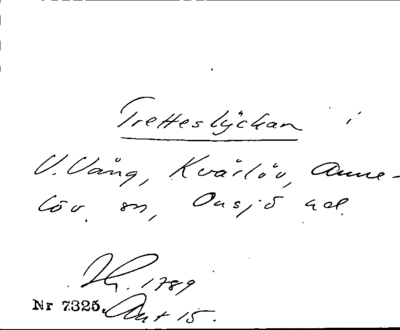 Tretteslyckan i
V. Vång, Kvärlöv, Anne-
löv sn, Onsjö hd.
1789
Nr 7325. Akt 15.